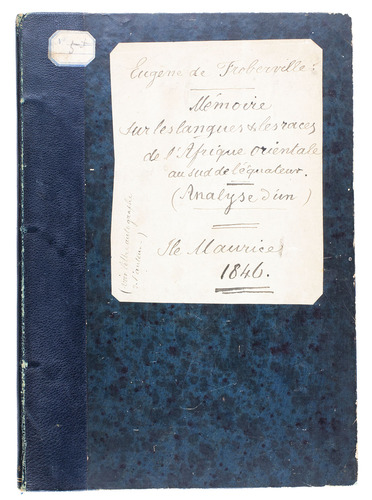 Eugène de Froberville:
Mémoire
sur les langues & les races
de l'Afrique orientale
au sud de l'équateur.
(Analyse d'un)
Ile Maurice
1846.